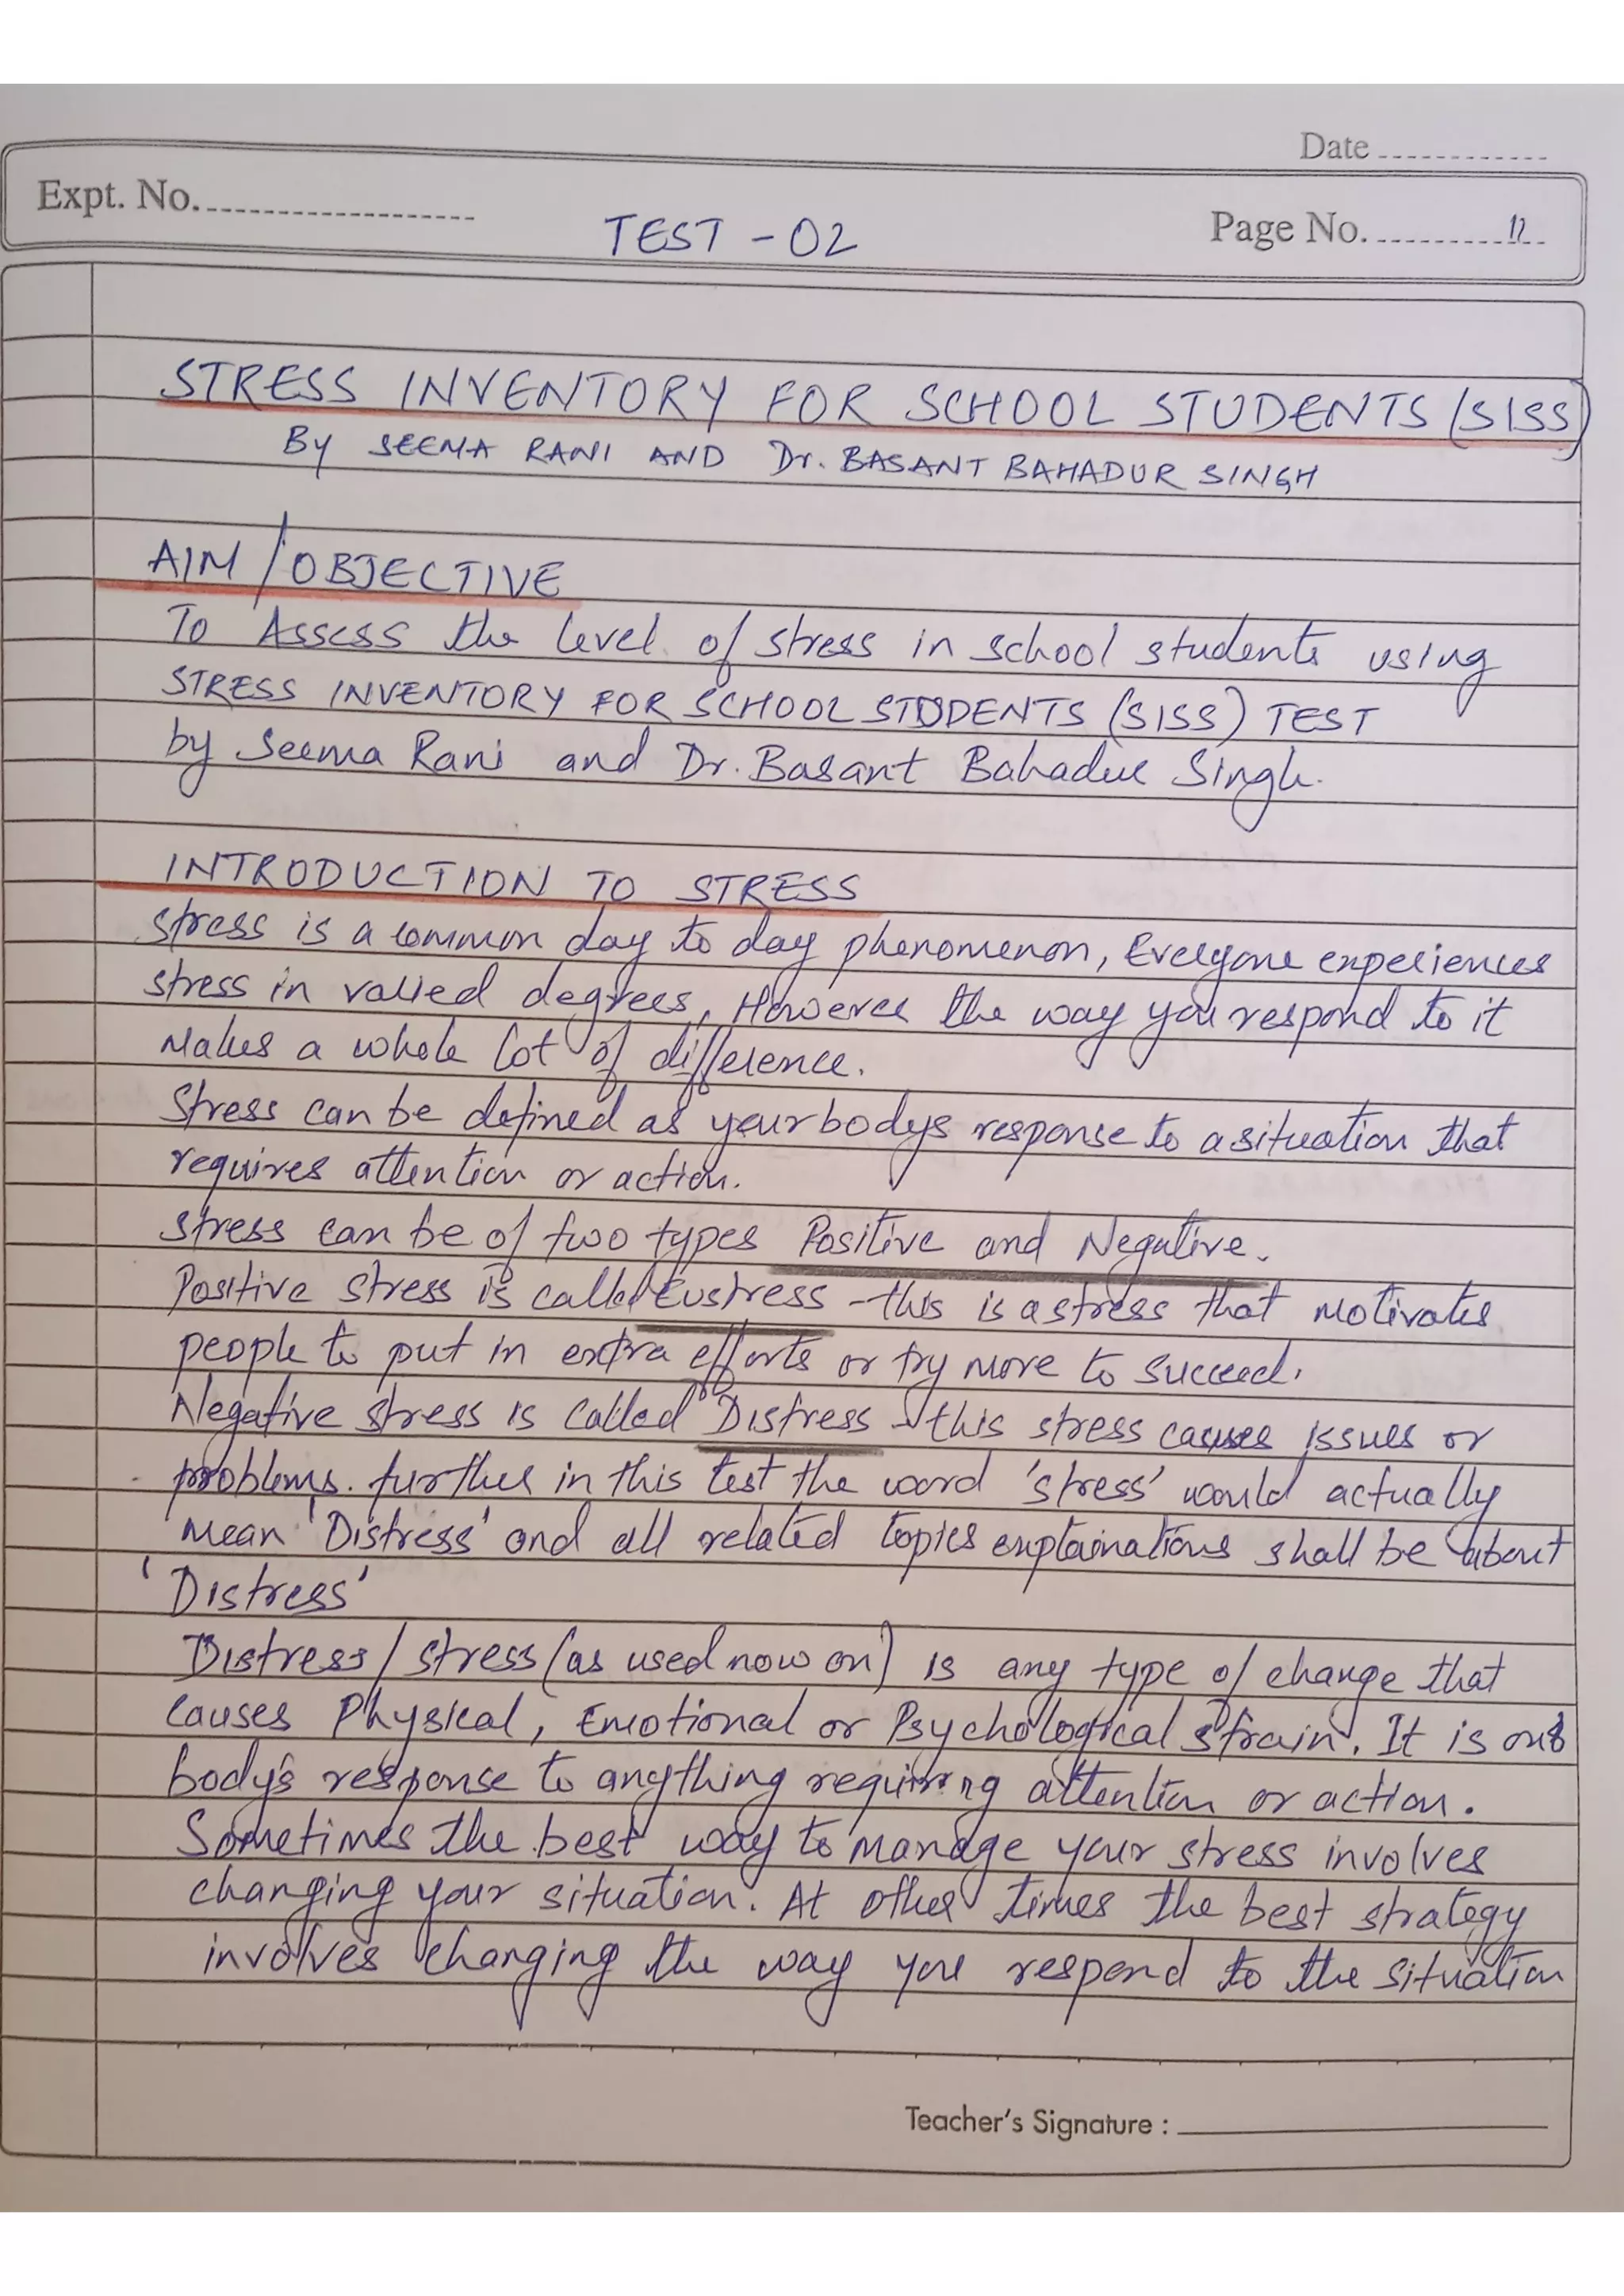 Date
Expt. No.
TEST - 02
Page No. 12
STRESS INVENTORY FOR SCHOOL STUDENTS (SISS)
By SEEMA RANI AND Dr. BASANT BAHADUR SINGH
AIM / OBJECTIVE
To Assess the level of stress in school students using
STRESS INVENTORY FOR SCHOOL STUDENTS (SISS) TEST
by Seema Rani and Dr. Basant Bahadur Singh.
INTRODUCTION TO STRESS
stress is a common day to day phenomenon, Everyone experiences
stress in varied degrees, However the way you respond to it
Makes a whole lot of difference.
Stress can be defined as your bodys response to a situation that
requires attention or action.
stress can be of two types Positive and Negative.
Positive stress is called Eustress - this is a stress that motivates
people to put in extra efforts or try more to succeed.
Negative stress is called Distress - this stress causes issues or
problems. further in this test the word 'stress' would actually
mean 'Distress' and all related topics explainations shall be about
'Distress'
Distress / stress (as used now on) is any type of change that
causes Physical, Emotional or Psychological strain. It is our
body's response to anything requiring attention or action.
Sometimes the best way to manage your stress involves
changing your situation. At other times the best strategy
involves changing the way you respond to the situation
Teacher's Signature :